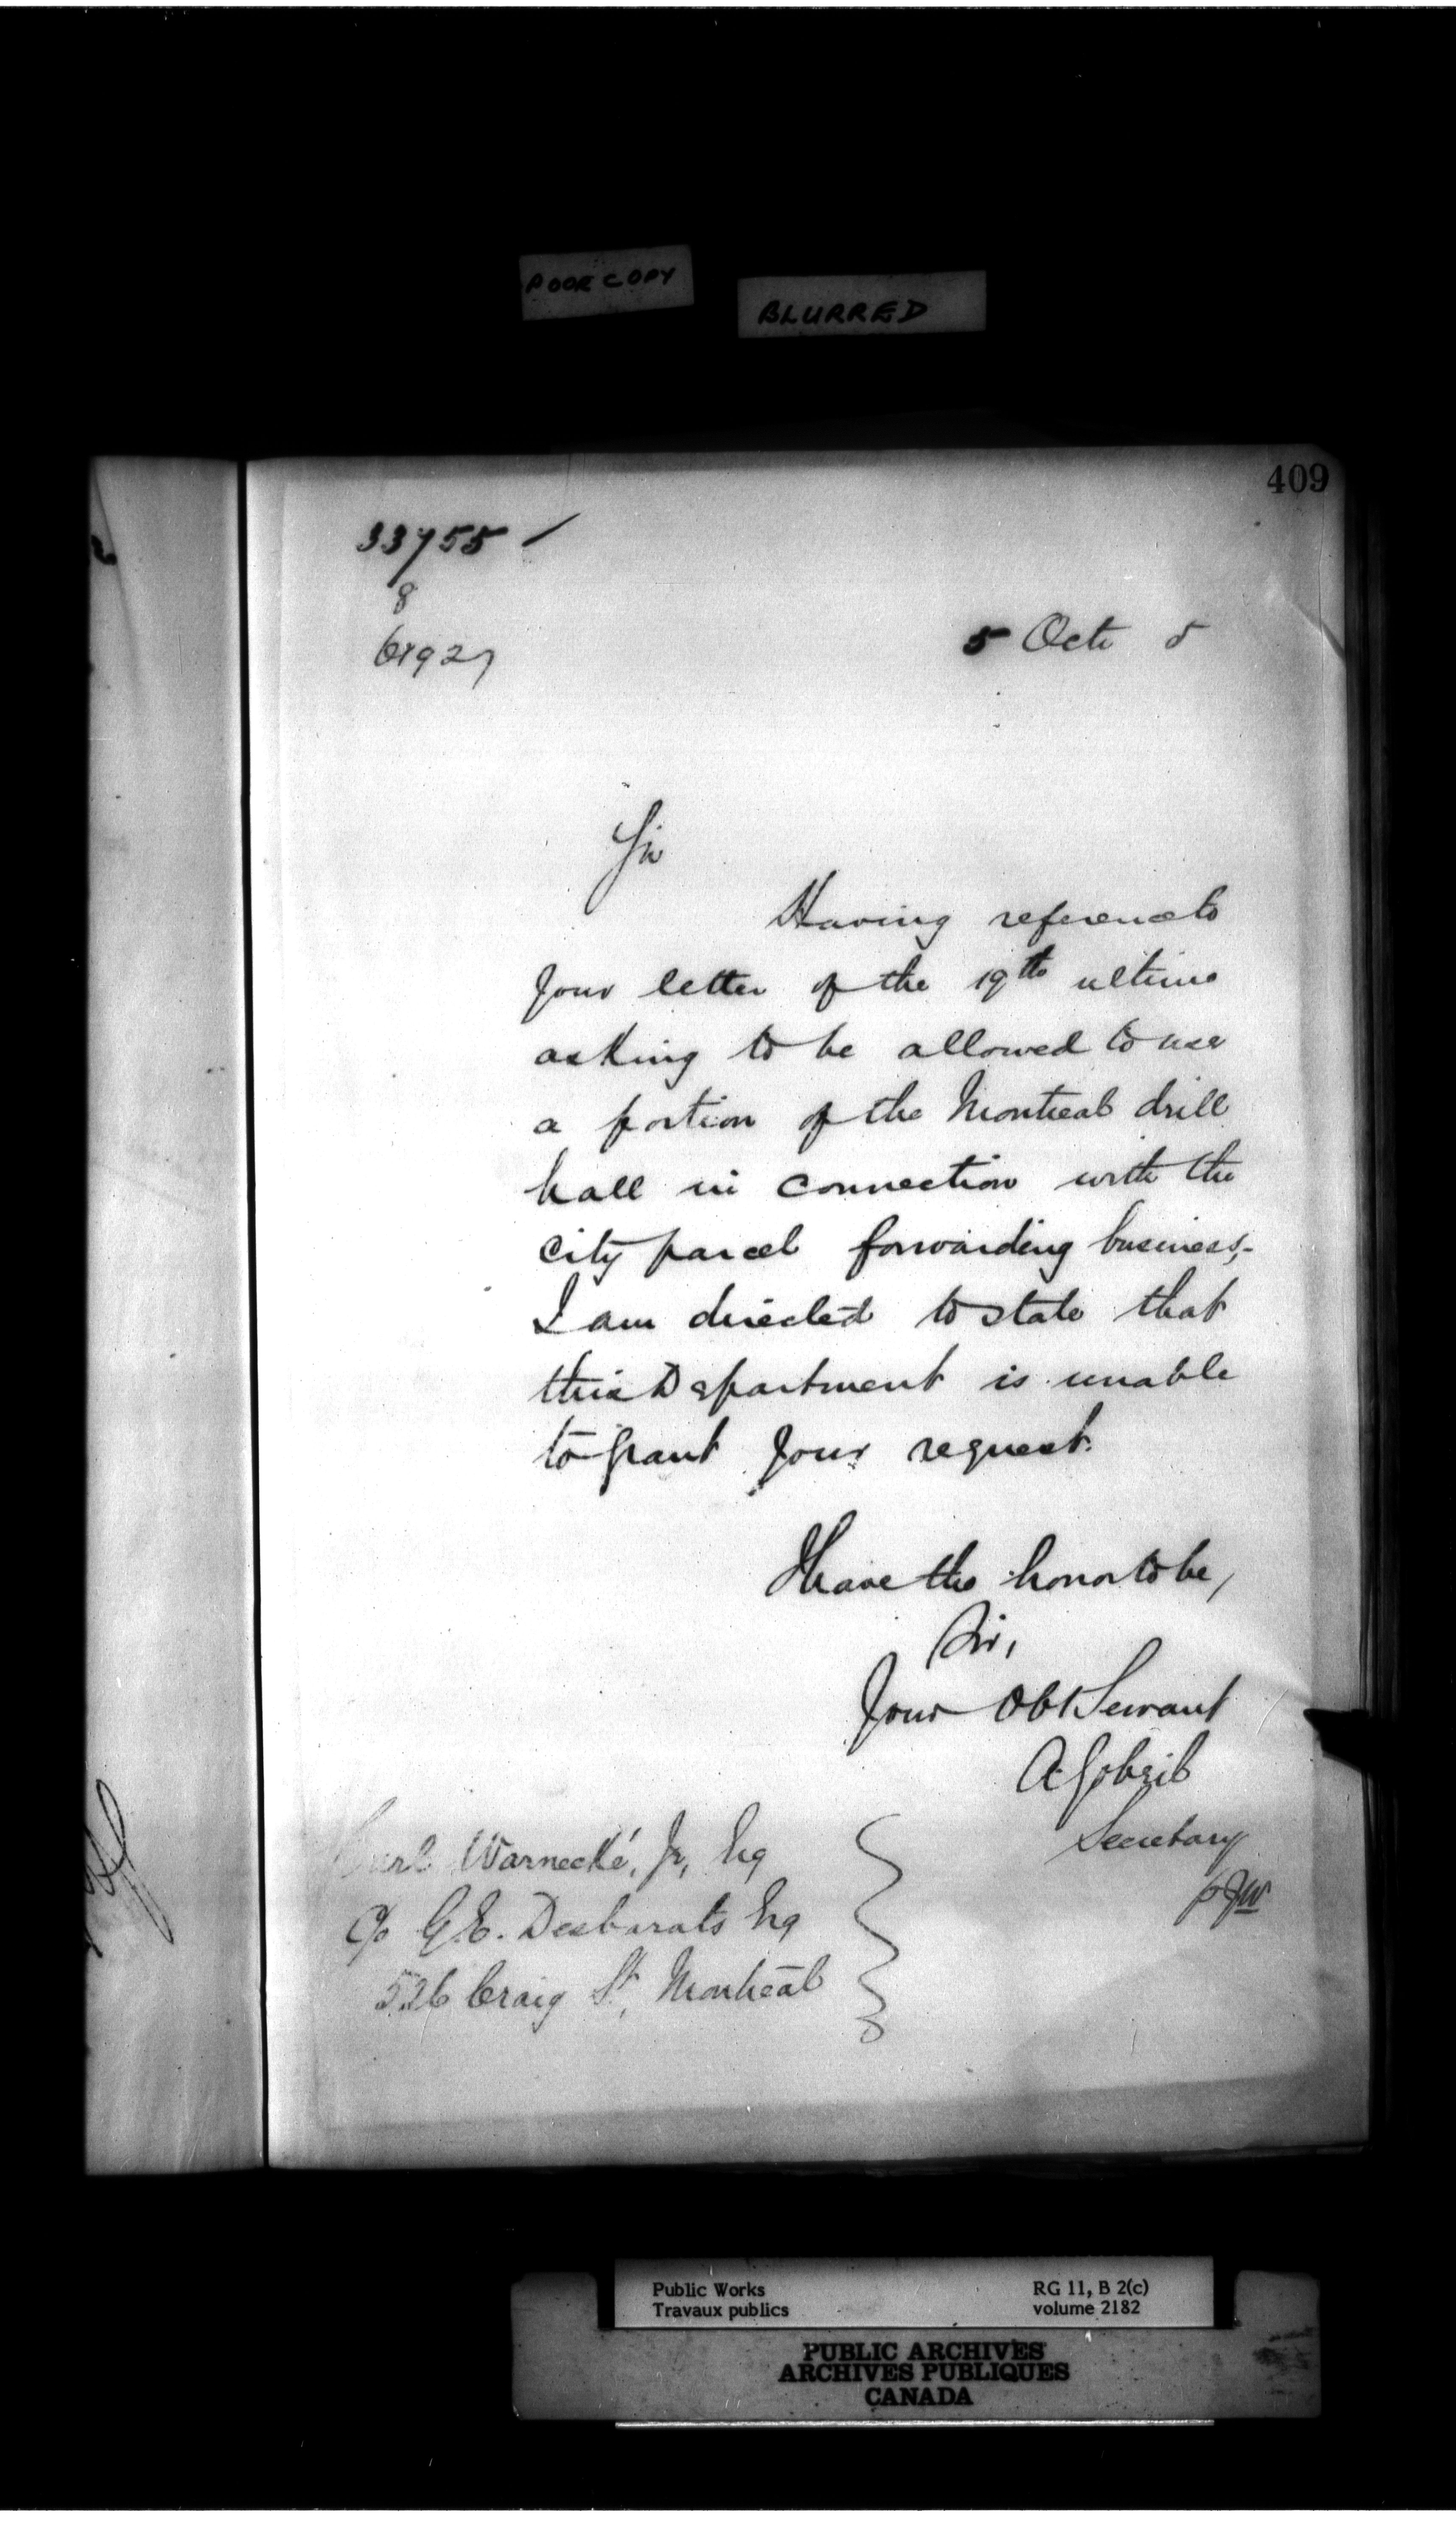 POOR COPY
BLURRED
409
33755
8
5 Octr 5
Sir
Having reference to
your letter of the 19th ultimo
asking to be allowed to use
a portion of the Montreal drill
hall in connection with the
city parcel forwarding business,-
I am directed to state that
this Department is unable
to grant your request.
I have the honor to be,
Sir,
Your Obt Servant
A. Gobeil
Secretary
p JW
Warnecké, Jr, Esq
c/o G.E. Desbarats Esq
526 Craig St, Montreal
Public Works
Travaux publics
RG 11, B 2(c)
volume 2182
PUBLIC ARCHIVES
ARCHIVES PUBLIQUES
CANADA